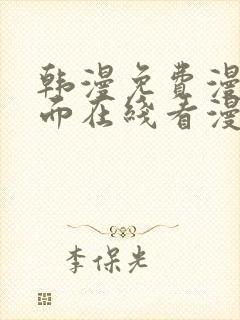 韩漫免费漫
而在线看漫
李保光